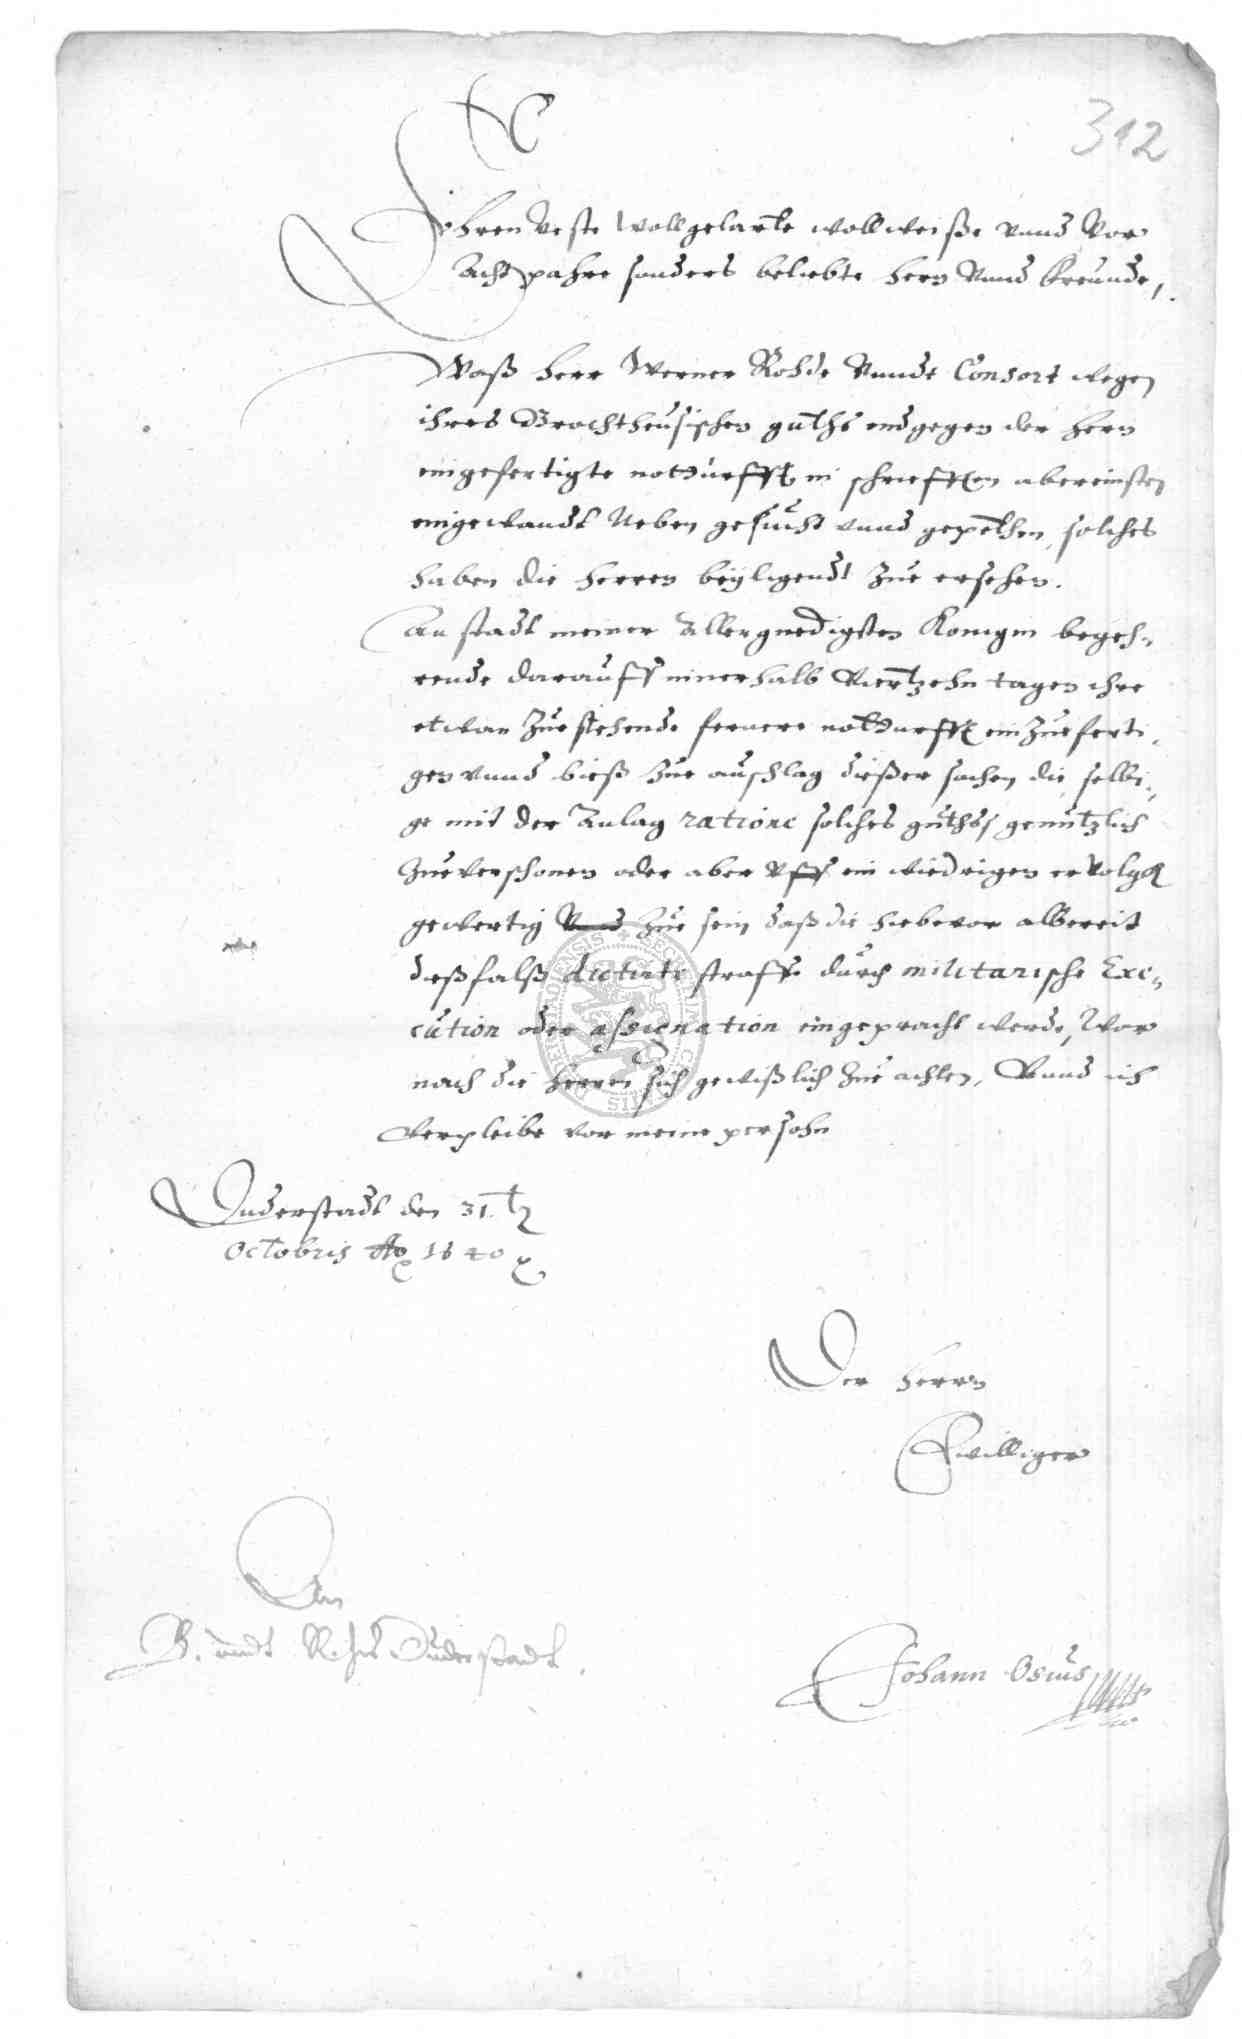 312
Ehren Veste Wollgelarte wollweiße vnnd Vor
Acht pahre sonders beliebte hern Vnnd Freunde,
Waß herr Werner Rohde Vnndt Consort wegen
ihres Brochtheusischen guths endgegen der hern
eingefertigte notturfft in schriefften abereinsten
eingewandt Neben gesucht vnnd gepethen, solches
haben die herren beÿligendt Zue ersehen.
An stadt meiner Allergnedigsten Konigin begeh-
rende darauff innerhalb Viertzehn tagen ihre
etwan Zuestehende fernere notturfft einZueferti,
gen vnnd bieß Zue außschlag dießer sachen die selbi-
ge mit der Anlag ratione solches guths gentzlich
Zueverschonen oder aber Vff ein wiedrigen ervolg
gewertig Zue sein daß die hiebevor albereit
dießfalß dictirte straffe durch militarische Exe-
cution oder assignation eingepracht werde, Wor
nach die herren sich gewißlich Zue achten, Vnnd ich
Verpleibe vor meine persohn
Duderstadt den 31.
Octobris Ao 1640
Der herrn
Gwilliger
An
B. vndt R. Duderstadt.
Johann Osius